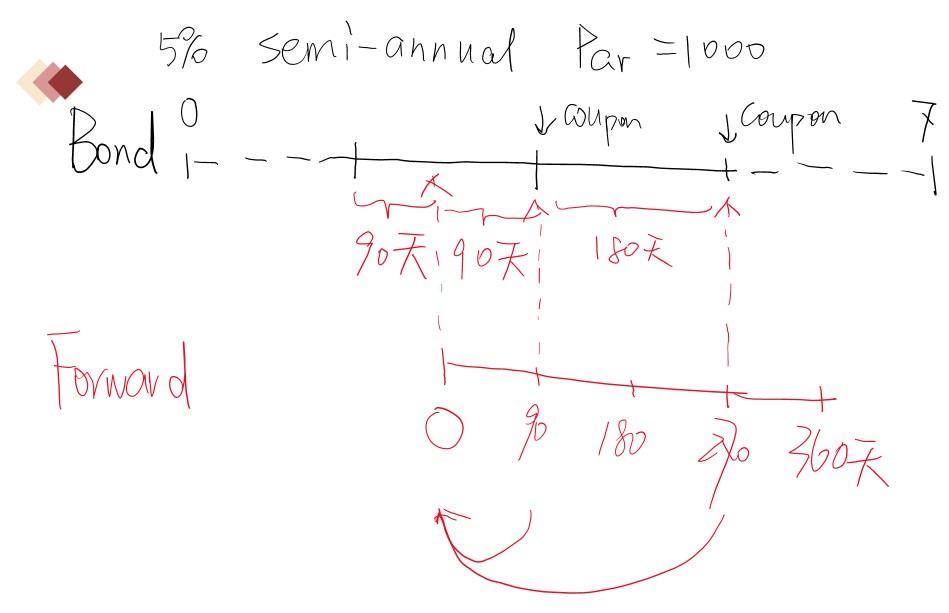 5% semi-annual Par =1000
0 ↓ coupon ↓ coupon 7
Bond
90天 90天 180天
Forward
0 90 180 270 360天